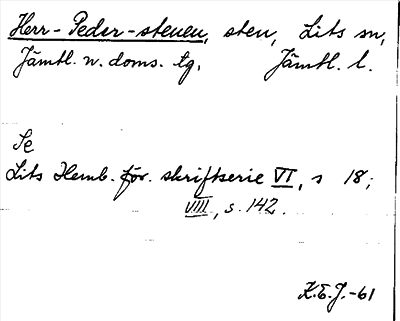 Herr-Peder-stenen, sten, Lits sn,
Jämtl. n. doms. tg. Jämtl. l.
Se
Lits Hemb. för. skriftserie VI, s 18;
VIII, s. 142.
K.E.J.-61